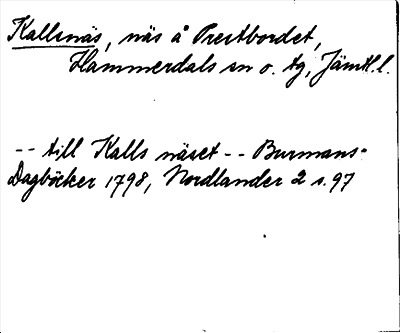 Kallsnäs, näs å Prestbordet,
Hammerdals sn o. tg, Jämtl.l.
-- till Kalls näset -- Burmans-
Dagböcker 1798, Nordlander 2 s.97